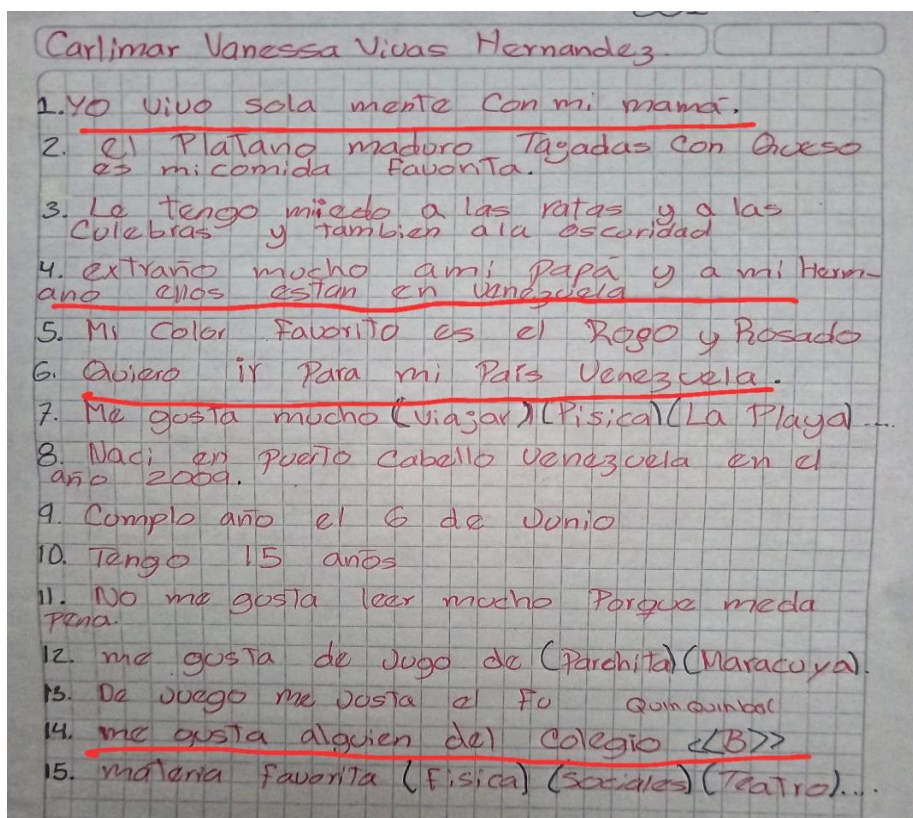 Carlimar Vanessa Vivas Hernandez.
1. Yo vivo sola mente con mi mamá.
2. el Platano maduro Tagadas con Queso
es mi comida favorita.
3. Le tengo miedo a las ratas y a las
Culebras y tambien ala oscuridad
4. extraño mucho ami papá y a mi Herm-
ano ellos estan en Venezuela
5. Mi Color Favorito es el Rogo y Rosado
6. Quiero ir Para mi País Venezuela.
7. Me gusta mucho (viajar) (Pisica) (La Playa)...
8. Naci en puerto Cabello Venezuela en el
año 2009.
9. Cumplo año el 6 de Junio
10. Tengo 15 años
11. No me gusta leer mucho Porque meda
pena.
12. me gusta de Jugo de (Parchita) (Maracuya).
13. De Juego me Justa el Fu Quinquinbol
14. me gusta alguien del Colegio <<B>>
15. materia favorita (Fisica) (Sociales) (Teatro)....